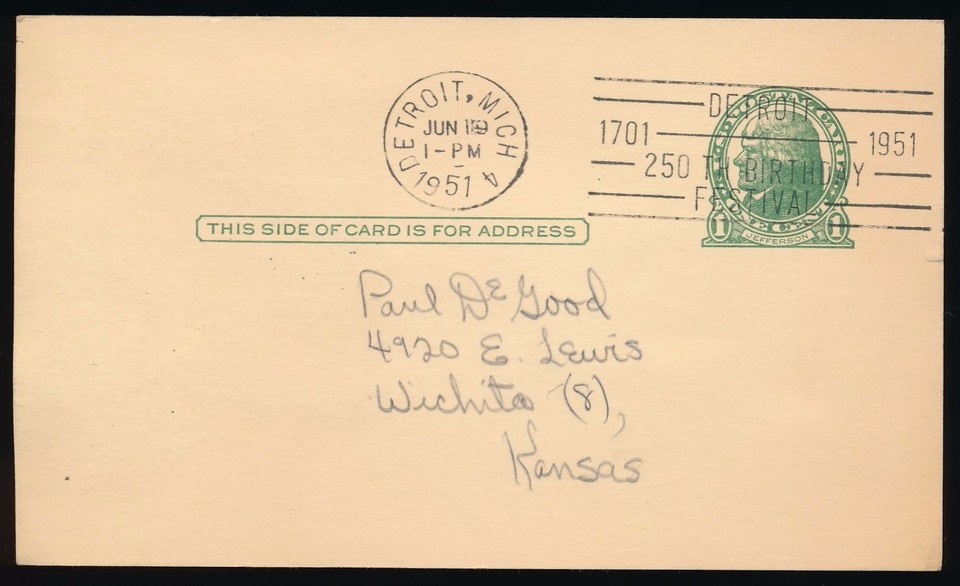 DETROIT, MICH
JUN 19
1-PM
1951
4
DETROIT
1701 1951
250 TH BIRTHDAY
FESTIVAL
U.S. POSTAL CARD
ONE CENT
1 JEFFERSON 1
THIS SIDE OF CARD IS FOR ADDRESS
Paul DE Good
4920 E. Lewis
Wichita (8),
Kansas